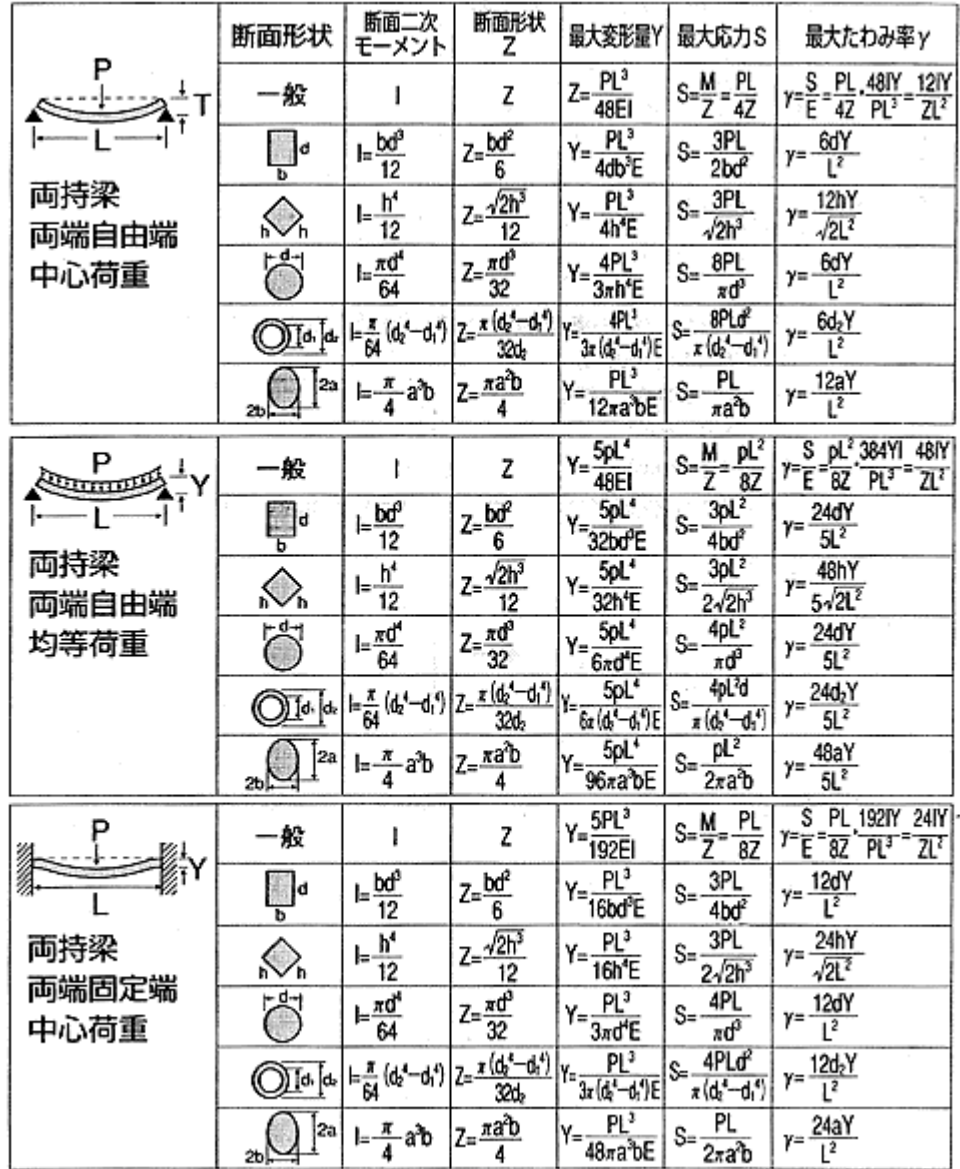 断面形状 断面二次モーメント 断面形状Z 最大変形量Y 最大応力S 最大たわみ率γ
P T L
両持梁
両端自由端
中心荷重
一般 I Z Z=PL³/48EI S=M/Z=PL/4Z γ=S/E=PL/4Z・48IY/PL³=12IY/ZL²
d b I=bd³/12 Z=bd²/6 Y=PL³/4db³E S=3PL/2bd² γ=6dY/L²
h h I=h⁴/12 Z=√2h³/12 Y=PL³/4h⁴E S=3PL/√2h³ γ=12hY/√2L²
d I=πd⁴/64 Z=πd³/32 Y=4PL³/3πh⁴E S=8PL/πd³ γ=6dY/L²
d₁ d₂ I=π/64(d₂⁴−d₁⁴) Z=π(d₂⁴−d₁⁴)/32d₂ Y=4PL³/3π(d₂⁴−d₁⁴)E S=8PLd²/π(d₂⁴−d₁⁴) γ=6d₂Y/L²
2a 2b I=π/4 a³b Z=πa²b/4 Y=PL³/12πa³bE S=PL/πa²b γ=12aY/L²
P Y L
両持梁
両端自由端
均等荷重
一般 I Z Y=5pL⁴/48EI S=M/Z=pL²/8Z γ=S/E=pL²/8Z・384YI/PL³=48IY/ZL²
d b I=bd³/12 Z=bd²/6 Y=5pL⁴/32bd³E S=3pL²/4bd² γ=24dY/5L²
h h I=h⁴/12 Z=√2h³/12 Y=5pL⁴/32h⁴E S=3pL²/2√2h³ γ=48hY/5√2L²
d I=πd⁴/64 Z=πd³/32 Y=5pL⁴/6πd⁴E S=4pL²/πd³ γ=24dY/5L²
d₁ d₂ I=π/64(d₂⁴−d₁⁴) Z=π(d₂⁴−d₁⁴)/32d₂ Y=5pL⁴/6π(d₂⁴−d₁⁴)E S=4pL²d/π(d₂⁴−d₁⁴) γ=24d₂Y/5L²
2a 2b I=π/4 a³b Z=πa²b/4 Y=5pL⁴/96πa³bE S=pL²/2πa²b γ=48aY/5L²
P Y L
両持梁
両端固定端
中心荷重
一般 I Z Y=5PL³/192EI S=M/Z=PL/8Z γ=S/E=PL/8Z・192IY/PL³=24IY/ZL²
d b I=bd³/12 Z=bd²/6 Y=PL³/16bd³E S=3PL/4bd² γ=12dY/L²
h h I=h⁴/12 Z=√2h³/12 Y=PL³/16h⁴E S=3PL/2√2h³ γ=24hY/√2L²
d I=πd⁴/64 Z=πd³/32 Y=PL³/3πd⁴E S=4PL/πd³ γ=12dY/L²
d₁ d₂ I=π/64(d₂⁴−d₁⁴) Z=π(d₂⁴−d₁⁴)/32d₂ Y=PL³/3π(d₂⁴−d₁⁴)E S=4PLd²/π(d₂⁴−d₁⁴) γ=12d₂Y/L²
2a 2b I=π/4 a³b Z=πa²b/4 Y=PL³/48πa³bE S=PL/2πa²b γ=24aY/L²